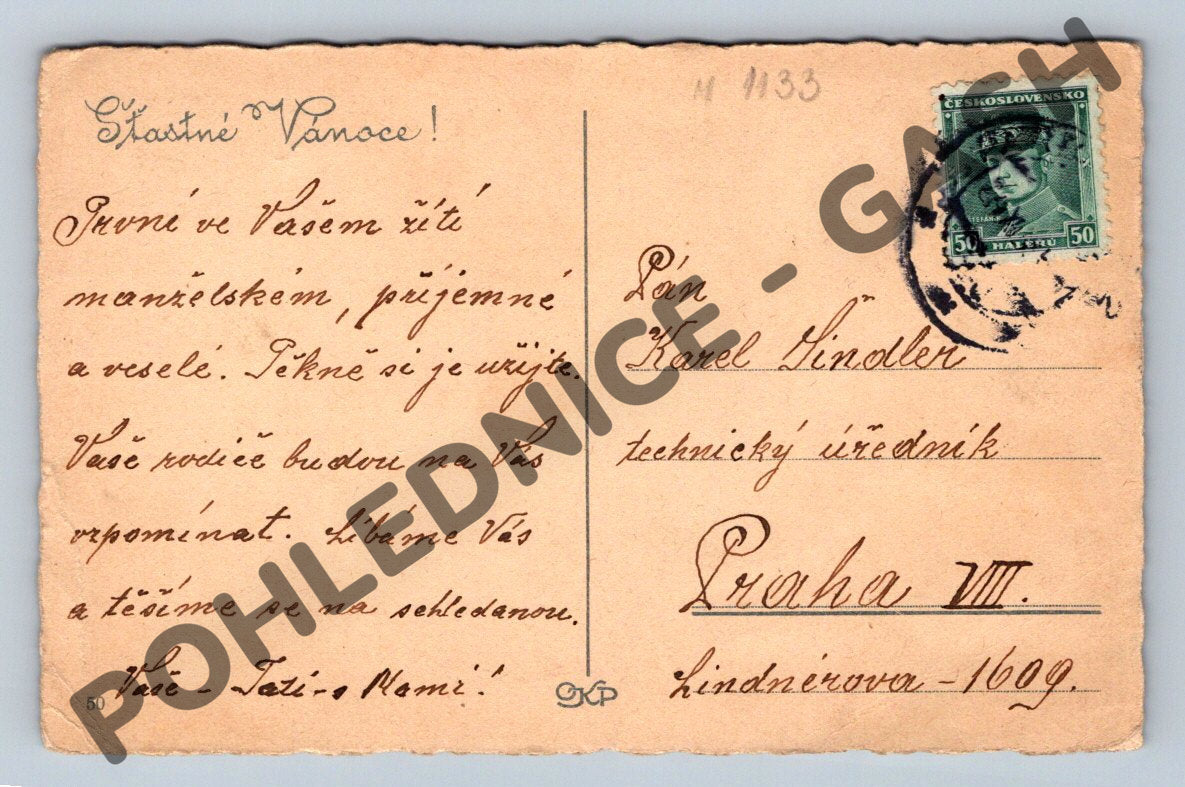 Šťastné Vánoce!
První ve Vašem žití
manželském, příjemné
a veselé. Pěkně si je užijte.
Vaše rodiče budou na Vás
vzpomínat. Líbáme Vás
a těšíme se na schledanou.
Vaši - Tatí-s Mamí!
50
OKP
M 1133
ČESKOSLOVENSKO
50 HALÉŘŮ 50
Pán
Karel Šindler
technický úředník
Praha VIII.
Lindnérova - 1609.
POHLEDNICE - GASH